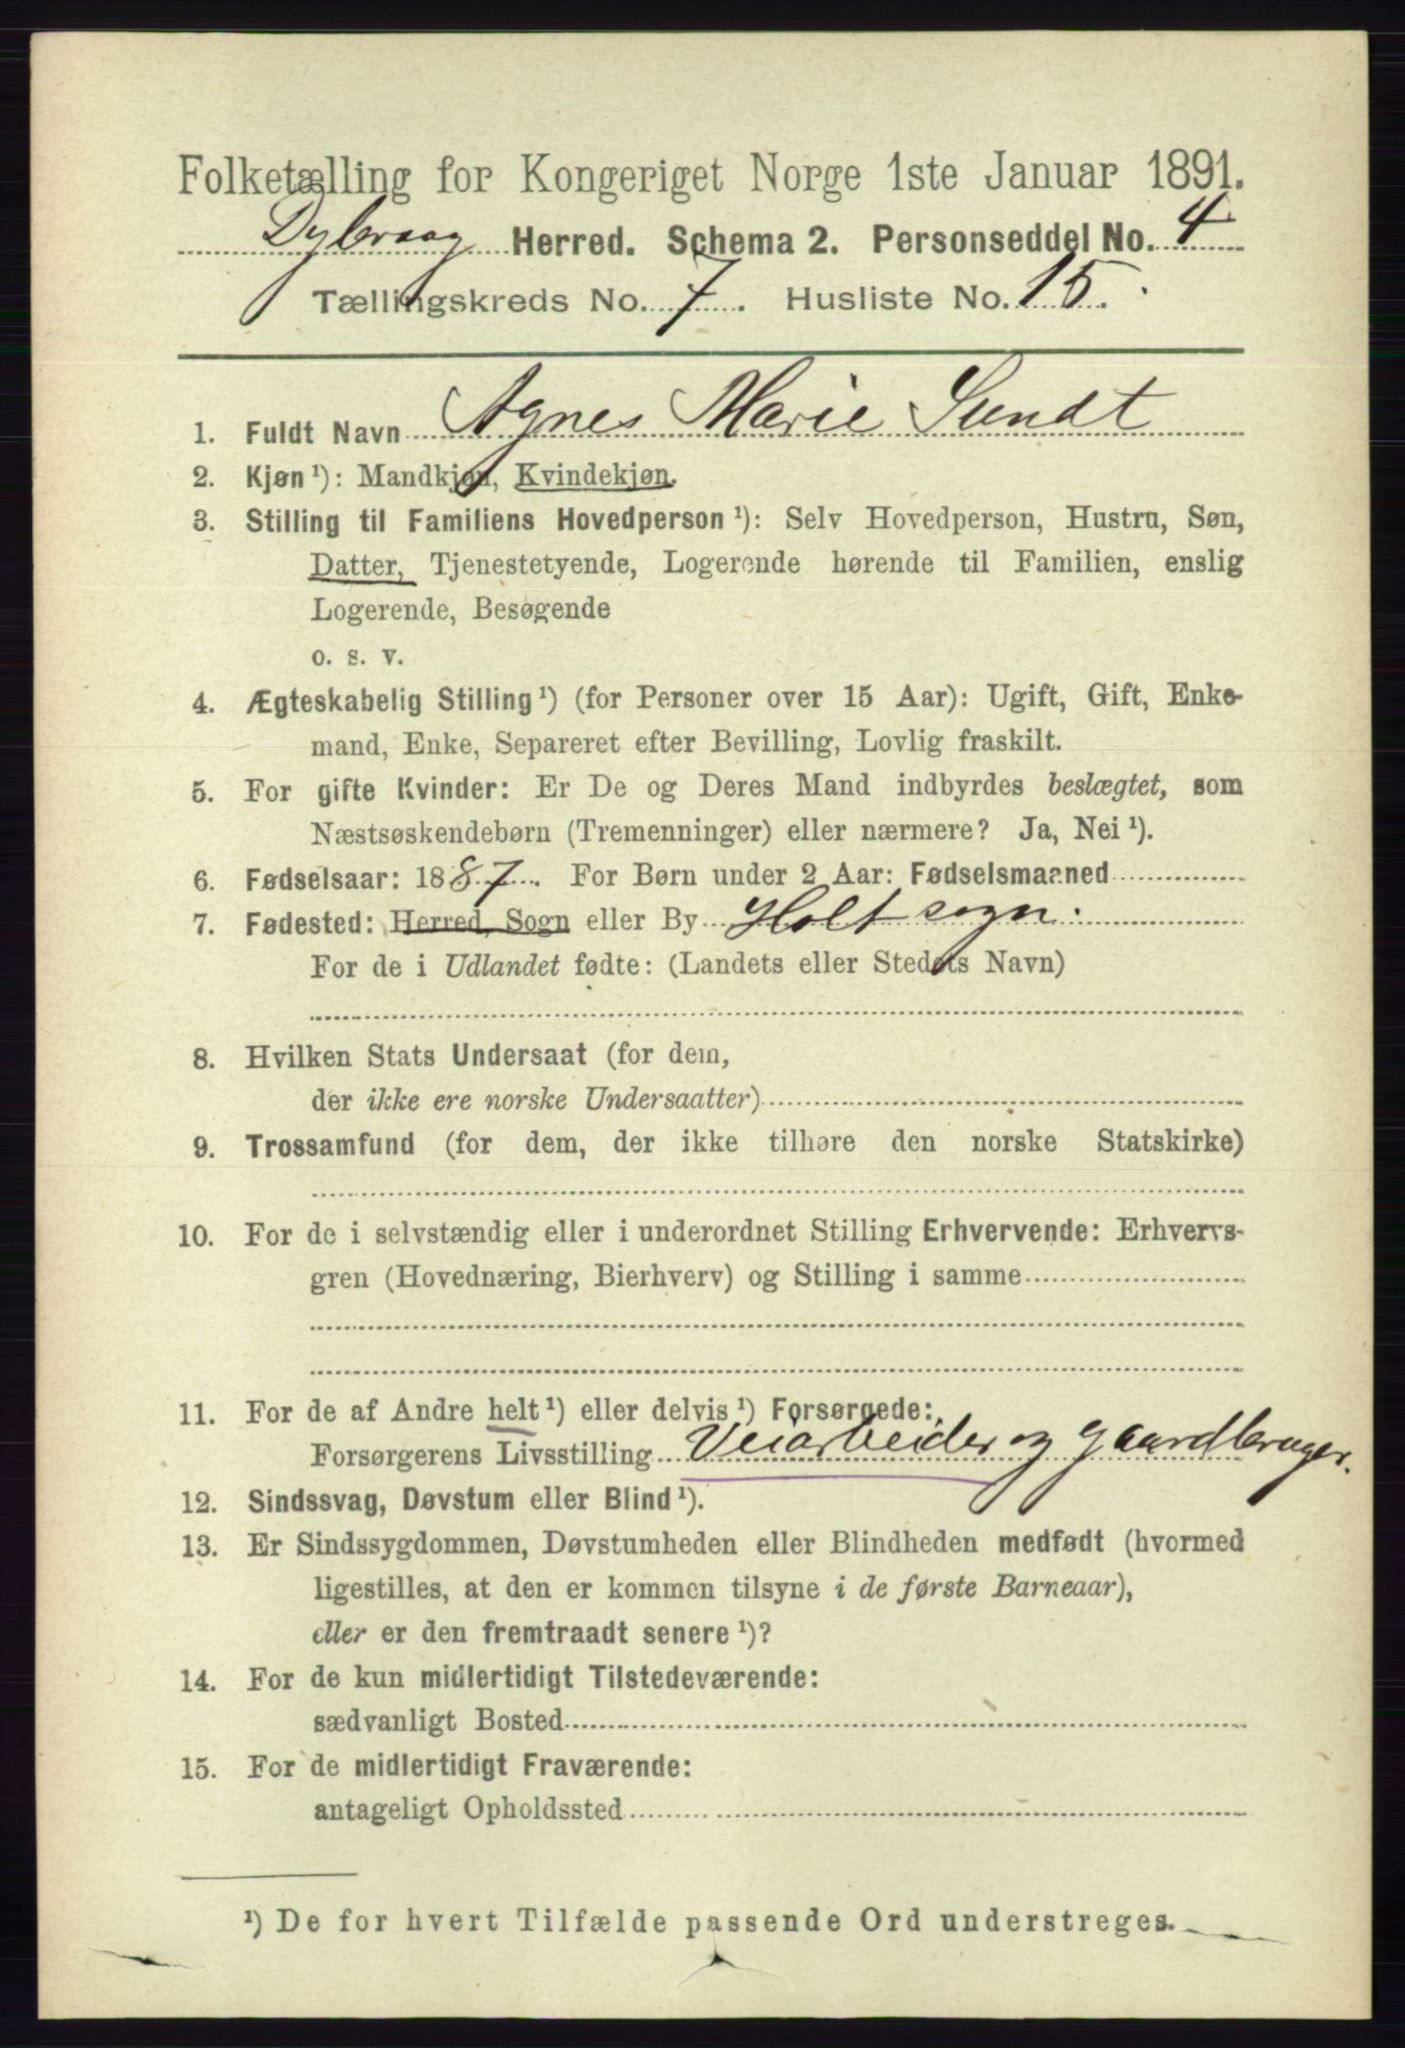 Folketælling for Kongeriget Norge 1ste Januar 1891.
Dybvaag Herred. Schema 2. Personseddel No. 4
Tællingskreds No. 7. Husliste No. 15.
1. Fuldt Navn Agnes Marie Sundt
2. Kjøn ¹): Mandkjøn, Kvindekjøn.
3. Stilling til Familiens Hovedperson ¹): Selv Hovedperson, Hustru, Søn,
Datter, Tjenestetyende, Logerende hørende til Familien, enslig
Logerende, Besøgende
o. s. v.
4. Ægteskabelig Stilling ¹) (for Personer over 15 Aar): Ugift, Gift, Enke-
mand, Enke, Separeret efter Bevilling, Lovlig fraskilt.
5. For gifte Kvinder: Er De og Deres Mand indbyrdes beslægtet, som
Næstsøskendebørn (Tremenninger) eller nærmere? Ja, Nei ¹).
6. Fødselsaar: 1887. For Børn under 2 Aar: Fødselsmaaned
7. Fødested: Herred, Sogn eller By Holt sogn.
For de i Udlandet fødte: (Landets eller Stedets Navn)
8. Hvilken Stats Undersaat (for dem,
der ikke ere norske Undersaatter)
9. Trossamfund (for dem, der ikke tilhøre den norske Statskirke)
10. For de i selvstændig eller i underordnet Stilling Erhvervende: Erhvervs-
gren (Hovednæring, Bierhverv) og Stilling i samme
11. For de af Andre helt ¹) eller delvis ¹) Forsørgede:
Forsørgerens Livsstilling Veiarbeider og gaardbruger.
12. Sindssvag, Døvstum eller Blind ¹).
13. Er Sindssygdommen, Døvstumheden eller Blindheden medfødt (hvormed
ligestilles, at den er kommen tilsyne i de første Barneaar),
eller er den fremtraadt senere ¹)?
14. For de kun midlertidigt Tilstedeværende:
sædvanligt Bosted
15. For de midlertidigt Fraværende:
antageligt Opholdssted
¹) De for hvert Tilfælde passende Ord understreges.